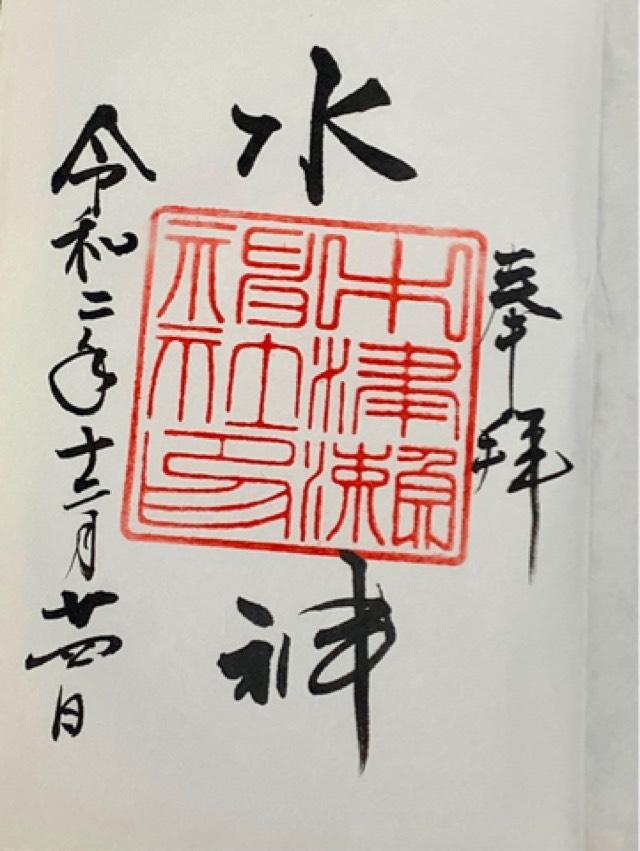 奉拝
水神
中津瀬
神社印
令和二年十二月廿四日